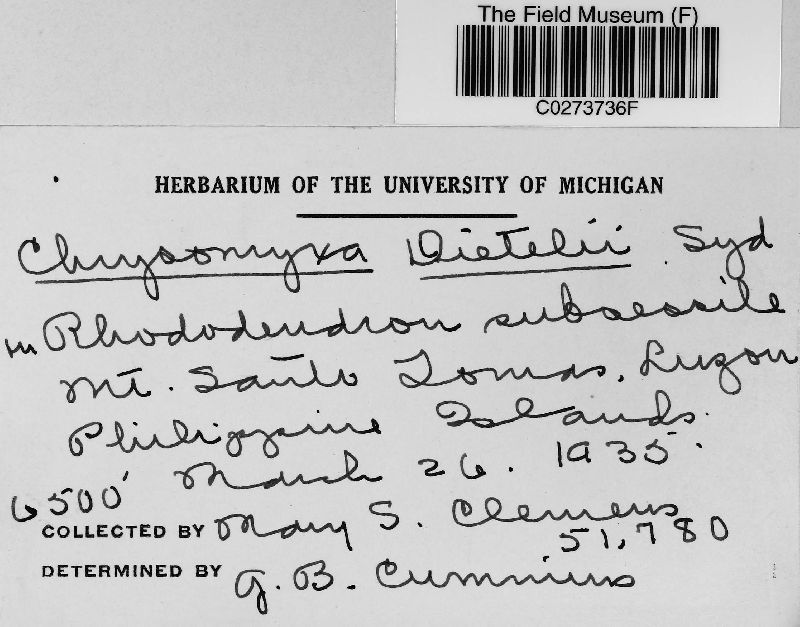 The Field Museum (F)
C0273736F
HERBARIUM OF THE UNIVERSITY OF MICHIGAN
Chrysomyxa Dietelii Syd
on Rhododendron subsessile
Mt. Santo Tomas, Luzon
Philippine Islands.
6500' March 26. 1935.
COLLECTED BY Mary S. Clemens
51,780
DETERMINED BY G. B. Cummins